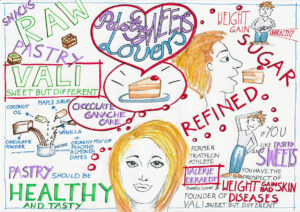 SNACKS
RAW
PASTRY
VALI
SWEET BUT DIFFERENT
Pastry
SWEETS
Lovers
WEIGHT
GAIN
UNHEALTHY
SUGAR
REFINED
COCONUT
OIL
MAPLE SIRUP
CHOCOLATE
POWDER
VANILLA
CRUNCHY MIX OF
PECANS
ALMONDS,
DATES
CHOCOLATE
GANACHE
CAKE
PASTRY SHOULD BE
HEALTHY
AND TASTY
FORMER
TRIATHLON
ATHLETE
VALERIE
Sweets Lover &
FOUNDER OF
VALI
SWEET BUT DIFFERENT
IF YOU
LIKE PASTRY
SWEETS
YOU HAVE THE
PROSPECT OF
WEIGHT GAINS
BAD SKIN
DISEASES